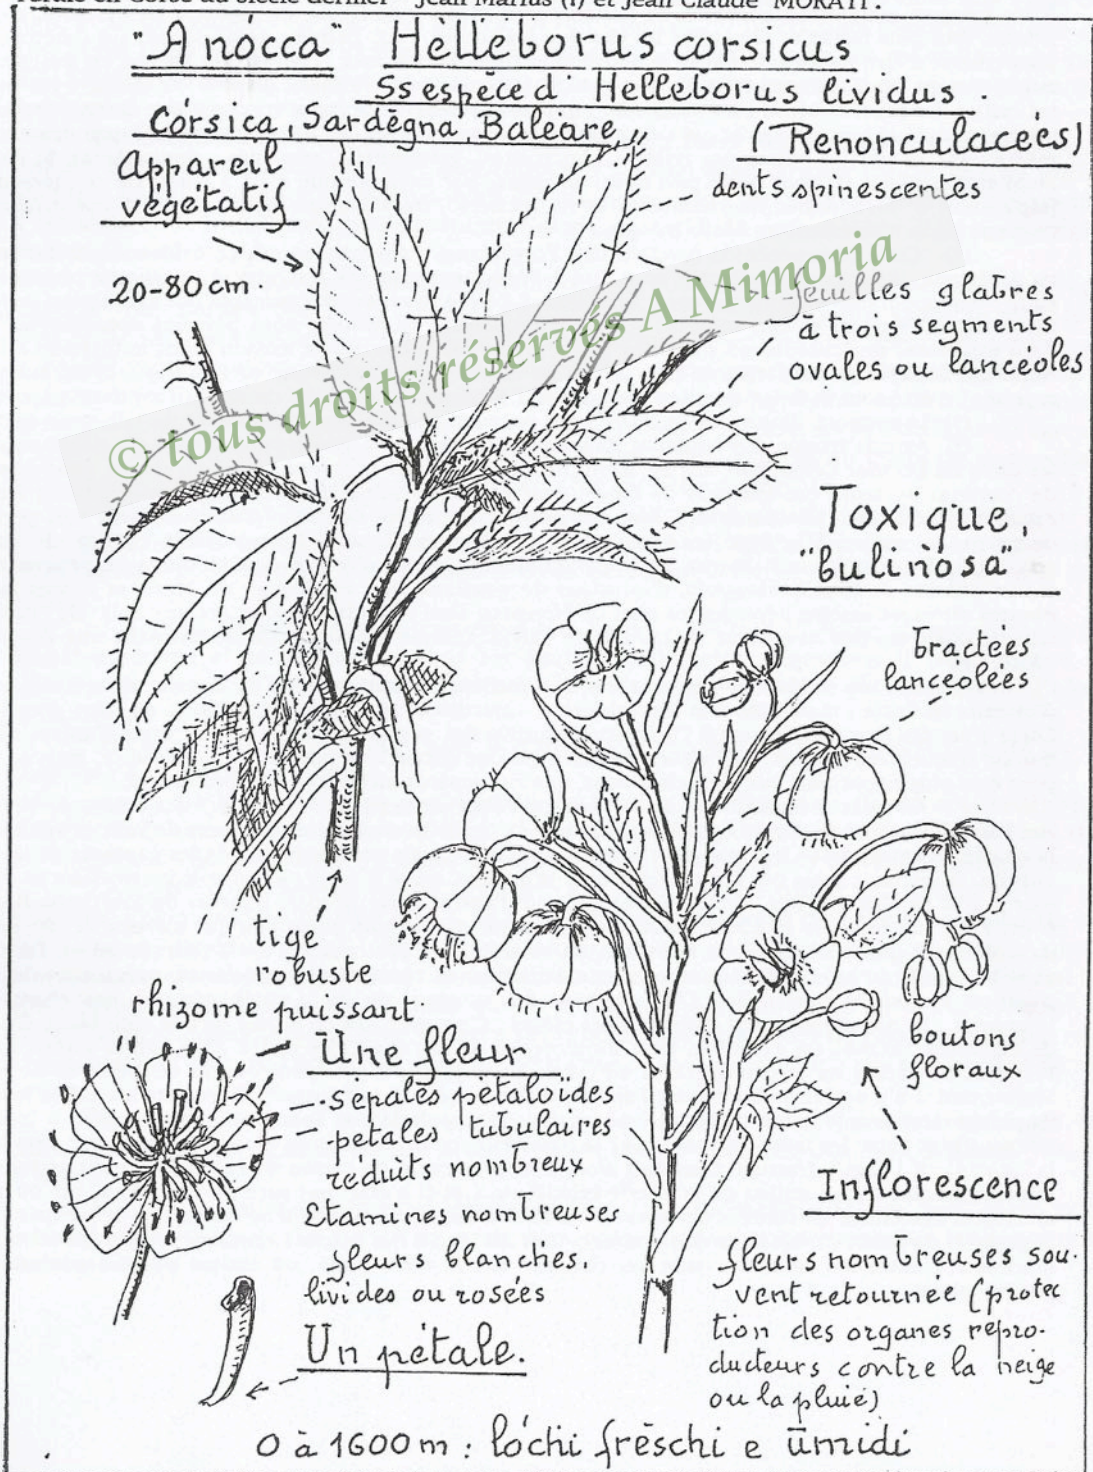 rurale en Corse au siècle dernier" Jean Marius (†) et Jean Claude MORATI.
"A nócca" Helleborus corsicus
Ssespèce d' Helleborus lividus.
Córsica, Sardègna, Baleare
(Renonculacées)
appareil
végétatif
dents spinescentes
20-80 cm.
feuilles glabres
à trois segments
ovales ou lancéoles
© tous droits réservés A Mimoria
Toxique
"bulinosa"
bractées
lancéolées
tige
robuste
rhizome puissant
boutons
floraux
Une fleur
- sépales pétaloïdes
- pétales tubulaires
réduits nombreux
Etamines nombreuses
fleurs blanches,
livides ou rosées
Un pétale.
Inflorescence
fleurs nombreuses sou-
vent retournée (protec
tion des organes repro-
ducteurs contre la neige
ou la pluie)
0 à 1600 m : lóchi frèschi e ùmidi